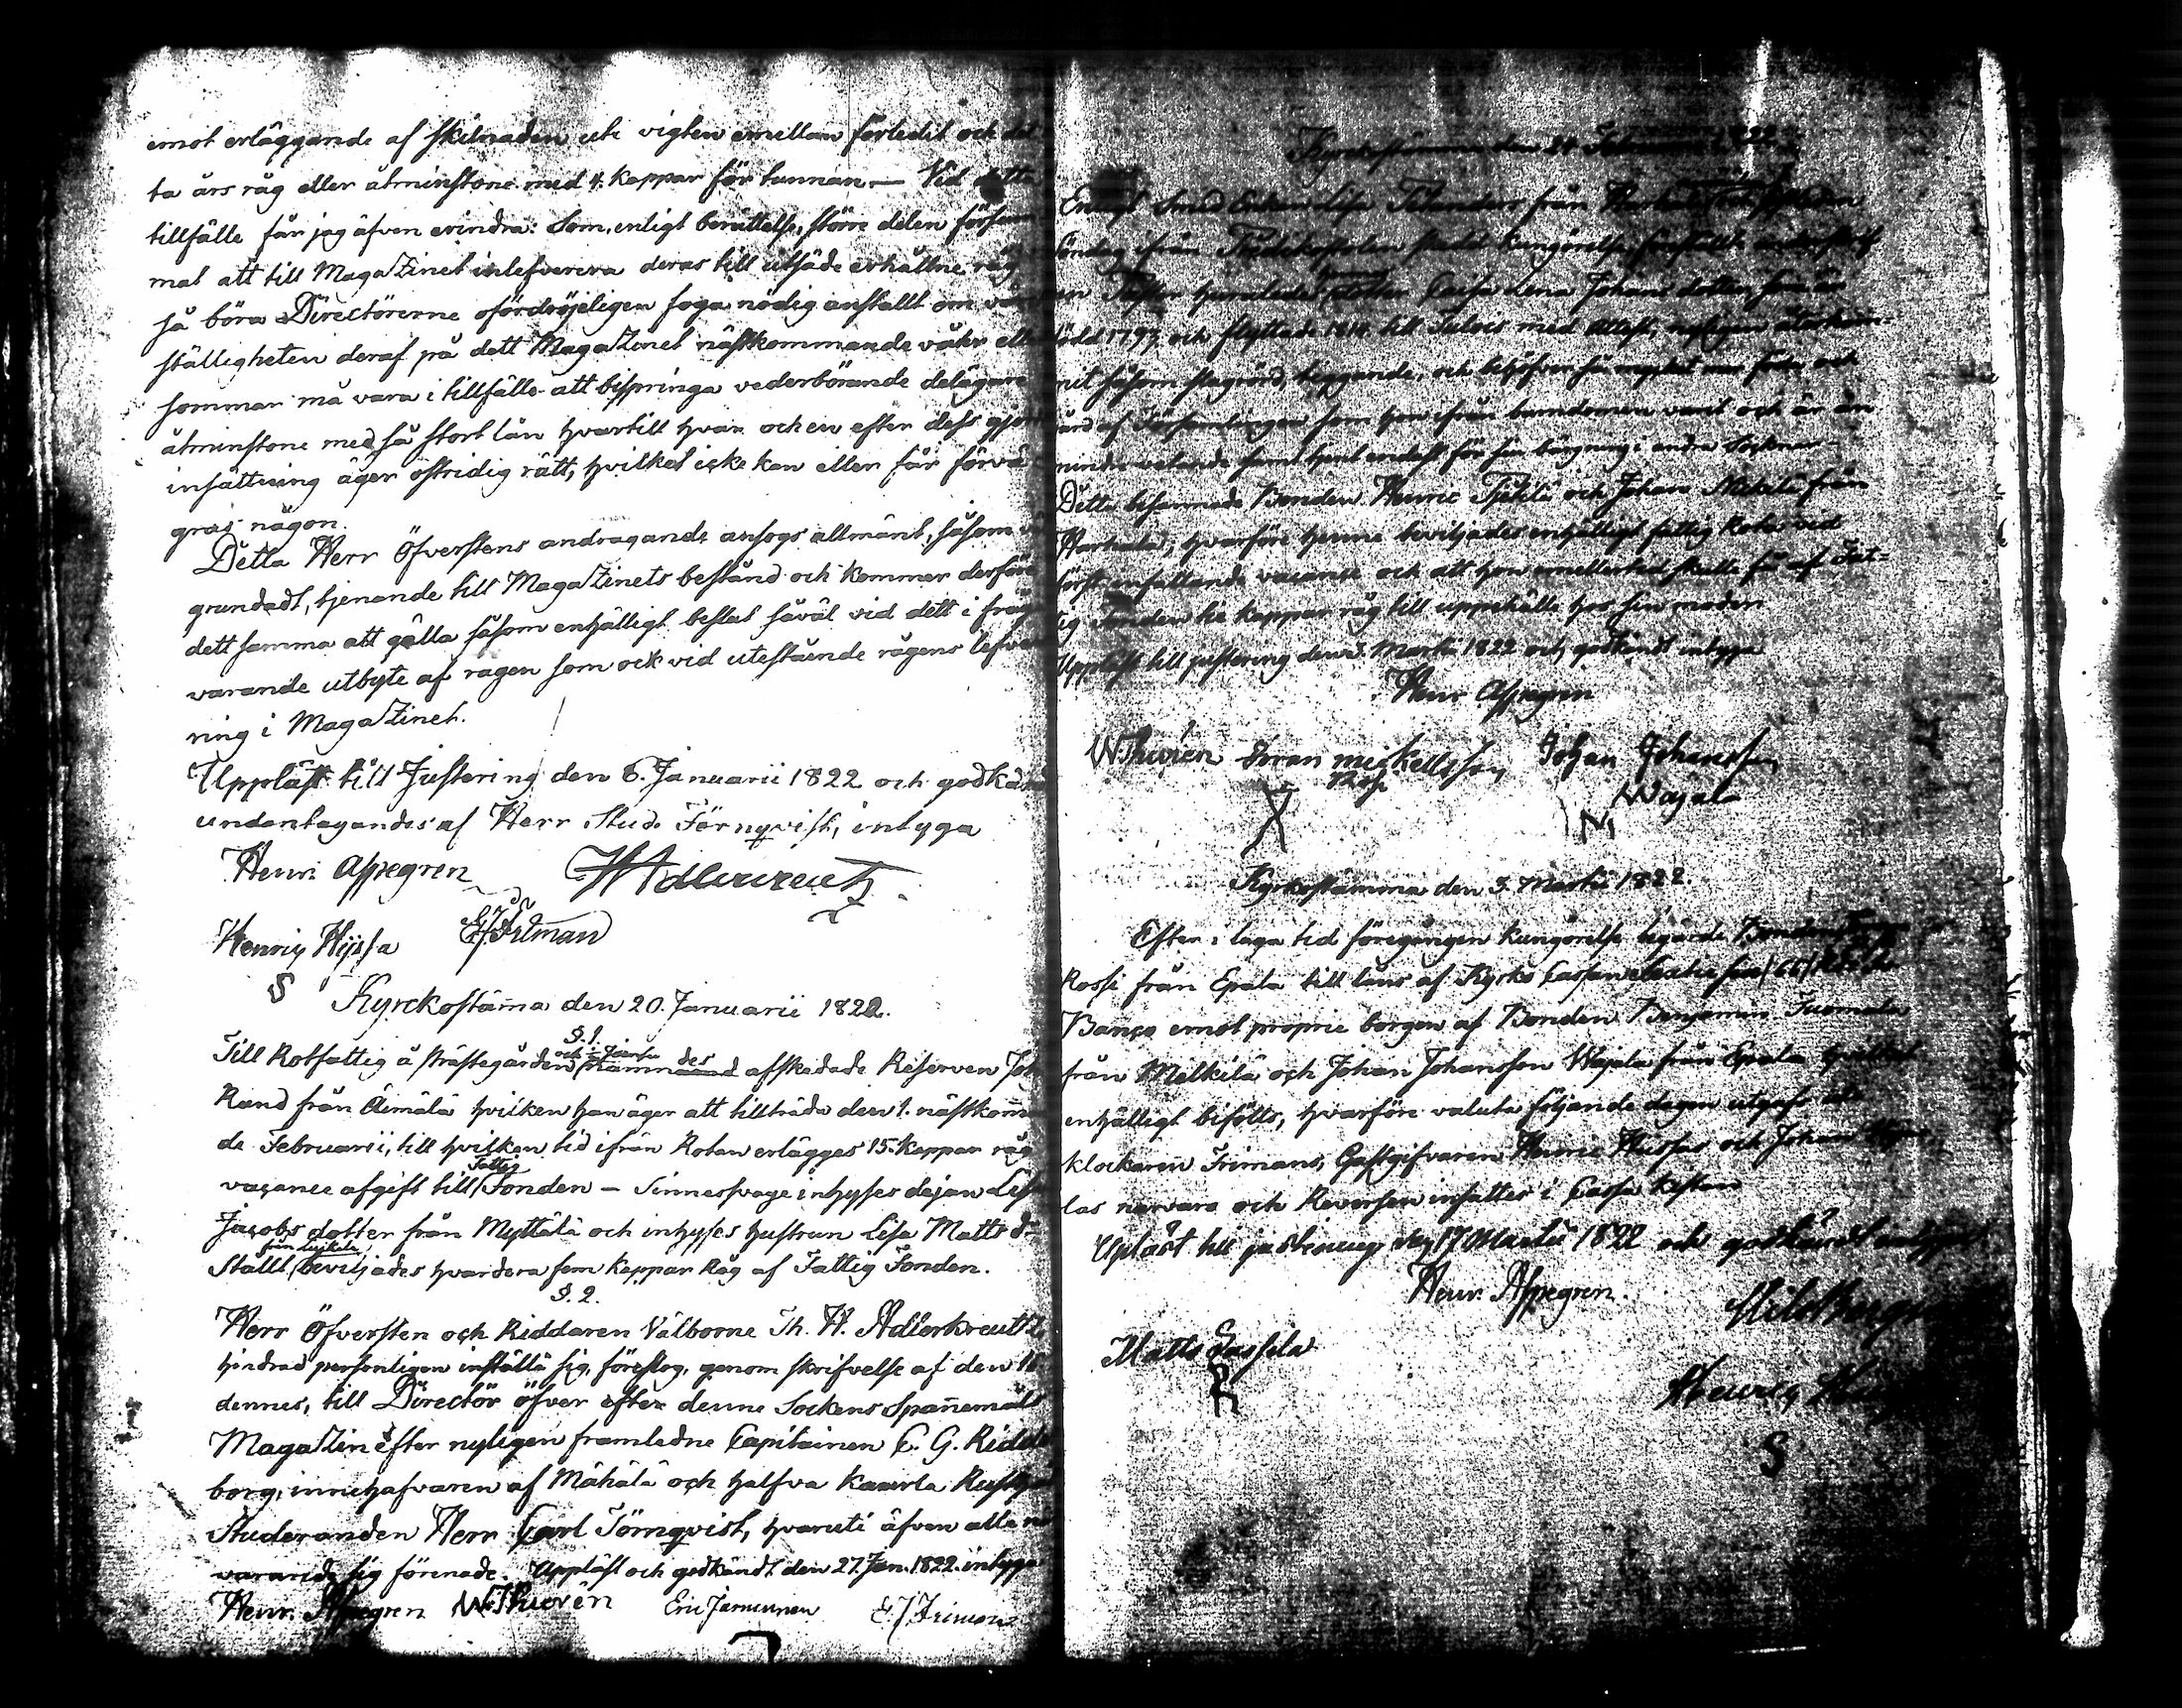 emot erläggande af skilnaden uti vigten emellan förledit och det
ta års råg eller åtminstone med 4. kappar för tunnan. — Vid detta
tillfälle får jag äfven erindra: Som, enligt berättelse, större delen försum
mat att till Magazinet inlefverera deras till utsäde erhållne råg
så böra Directörerne ofördröjeligen foga nödig anstallt om värk
ställigheten deraf på dett Magazinet nästkommande våhr ell
sommar må vara i tillfälle att bispringa vederbörande delägare
åtminstone med så stort lån hvartill hvar och en efter dess gjor
insättning äger ostridig rätt, hvilket icke kan eller får förvä
gras någon.
Detta Herr Öfverstens andragande ansogs allmänt, såsom
grundadt, tjenande till Magazinets bestånd och kommer derföre
dett samma att gälla såsom enhälligt beslut såväl vid dett i fråg
varande utbyte af rågen som ock vid utestående rågens lefve
ring i Magazinet.
Uppläst till Justering den 6. Januarii 1822 och godkändt
undertagandes af Herr Stud. Törnqvist, intyga
Henr. Aspegren HAdlercreutz
Henriq Hyssa EJFriman
S
Kyrckostämma den 20. Januarii 1822.
§. 1.
Till Rotfattig å Prästegården och i Jäerfu kamnades afskedade Reserven Joh
Rand från Äimälä hvilken han äger att tillträda den 1. nästkomm
de Februarii, till hvilken tid ifrån Rotan erlägges 15. kappar råg
vacance afgift till Fattig Fonden — Sinnessvage inhyses dejan Lisa
Jacobs dotter från Myttälä och inhyses hustrun Lisa Matts d:r
Ställt från Lujkala beviljades hvardera fem kappar Råg af Fattig Fonden.
§. 2.
Herr Öfversten och Riddaren Välborne Th. H. Adlerkreutz
hindrad personligen inställa sig, föreslog, genom skrifvelse af den 16
dennes, till Directör öfver efter denne Sockens Spanemåls
Magazin efter nyligen framledne Capitainen C. G. Ridde
borg, innehafvaren af Mähälä och halfva Kaurla Rusth
Studeranden Herr Carl Törnqvist, hvaruti äfven alla när
varande sig förenade. Uppläst och godkändt den 27. Jan. 1822. intyga
Henr. Aspegren W.Thurén Eric Jamunen EJFriman
Kyrckostämma den 24 Februarii 1822
Söndag ifrån Predikostolen skedd kungörelse
dotter Caisa Lena Johans dotter, som är
född 1797 och flyttade 1814 till Tulois med attest, nyligen återkom-
mit såsom, och behöfver så mycket mer föda och
vård af Församlingen som hon ifrån barndomen varit och är än
mindre vetande
Detta besannade Bonden Henric Pjekilä och Johan Mikkilä från
hvarföre henne beviljades enhälligt fattig Rota vid
först infallande vacance och att hon emellertid skulle få af Fat-
tig Fonden tie kappar råg till uppehälle hos sin moder.
Uppläst till justering den 3. Martii 1822 och godkändt intyga
Henr. Aspegren
W.Thurén Göran Mickellsson Johan Johansson
Rossi Wäjälä
Kyrkostämma den 3. Martii 1822.
Efter i laga tid föregången kungörelse begärde Bonden
Rossi från Epala till låns af Kyrko Cassan Sextio sex (66) Rubler
Banco emot proprie borgen af Bonden Benjamin Tuomala
från Mälkilä och Johan Johansson Wajala från Epala hvilket
enhälligt bifölls, hvarföre valuta följande dagen utgafs uti
klockaren Frimans, Gästgifvaren Henric Hussas och Johan
las närvaro och Reversen insattes i Cassa kistan
Upläst till justering den 17 Martii 1822 och godkändt intyga
Henr. Aspegren.
Matts Eassila
Henriq
S